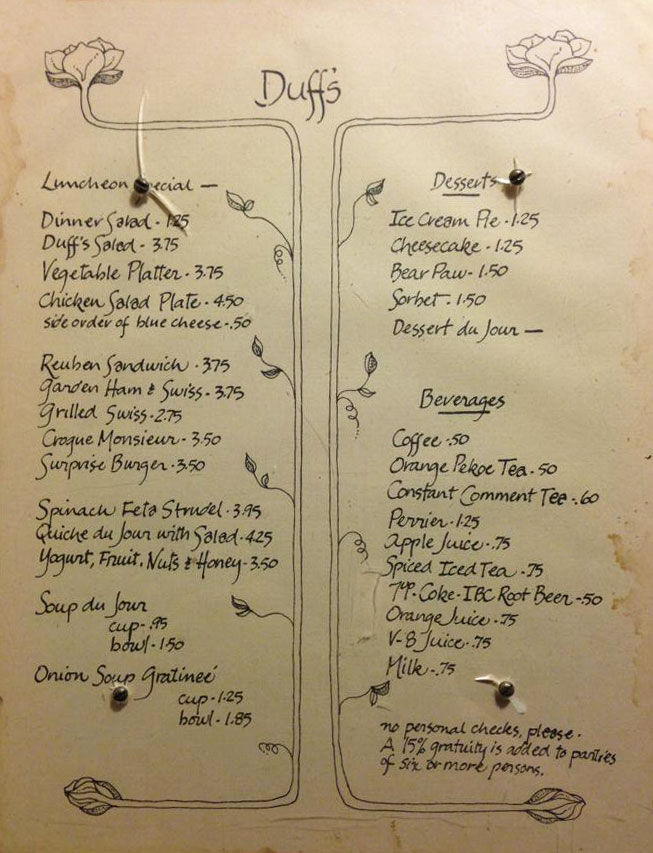 Duff's
Luncheon Special —
Dinner Salad - 1.25
Duff's Salad - 3.75
Vegetable Platter - 3.75
Chicken Salad Plate - 4.50
side order of blue cheese - .50
Reuben Sandwich - 3.75
Garden Ham & Swiss - 3.75
Grilled Swiss - 2.75
Croque Monsieur - 3.50
Surprise Burger - 3.50
Spinach Feta Strudel - 3.95
Quiche du Jour with Salad - 4.25
Yogurt, Fruit, Nuts & Honey - 3.50
Soup du Jour
cup - .95
bowl - 1.50
Onion Soup Gratineé
cup - 1.25
bowl - 1.85
Desserts
Ice Cream Pie - 1.25
Cheesecake - 1.25
Bear Paw - 1.50
Sorbet - 1.50
Dessert du Jour —
Beverages
Coffee - .50
Orange Pekoe Tea - .50
Constant Comment Tee - .60
Perrier - 1.25
Apple Juice - .75
Spiced Iced Tea - .75
7up - Coke - IBC Root Beer - .50
Orange Juice - .75
V-8 Juice - .75
Milk - .75
no personal checks, please.
A 15% gratuity is added to parties
of six or more persons.